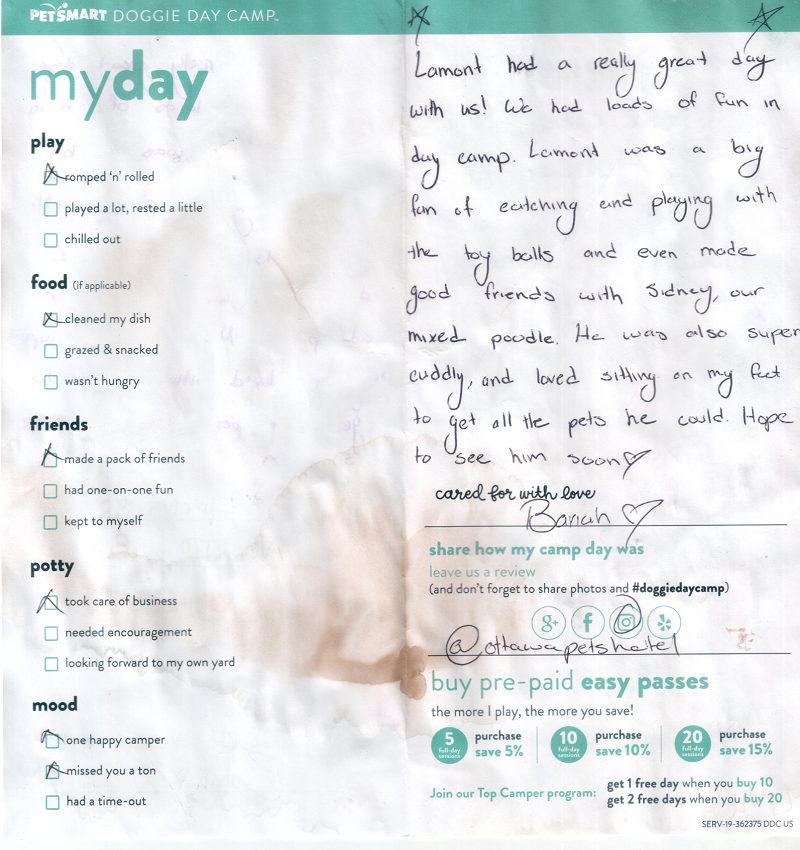 PETSMART DOGGIE DAY CAMP™
myday
play
romped 'n' rolled
played a lot, rested a little
chilled out
food (if applicable)
cleaned my dish
grazed & snacked
wasn't hungry
friends
made a pack of friends
had one-on-one fun
kept to myself
potty
took care of business
needed encouragement
looking forward to my own yard
mood
one happy camper
missed you a ton
had a time-out
Lamont had a really great day
with us! We had loads of fun in
day camp. Lamont was a big
fan of catching and playing with
the toy balls and even made
good friends with Sidney, our
mixed poodle. He was also super
cuddly, and loved sitting on my feet
to get all the pets he could. Hope
to see him soon
cared for with love
Bariah
share how my camp day was
leave us a review
(and don't forget to share photos and #doggiedaycamp)
g+ f
@ottawapetshotel
buy pre-paid easy passes
the more I play, the more you save!
5 full-day sessions purchase save 5%
10 full-day sessions purchase save 10%
20 full-day sessions purchase save 15%
Join our Top Camper program: get 1 free day when you buy 10
get 2 free days when you buy 20
SERV-19-362375 DDC US